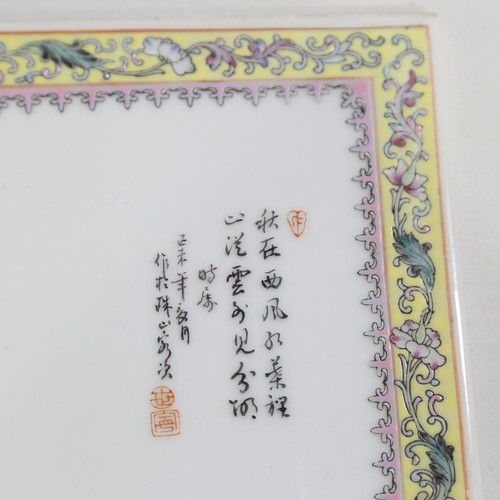 秋在西風紅葉裡
山從雲外見分明
時屬
己未年夏月
作於珠山客次